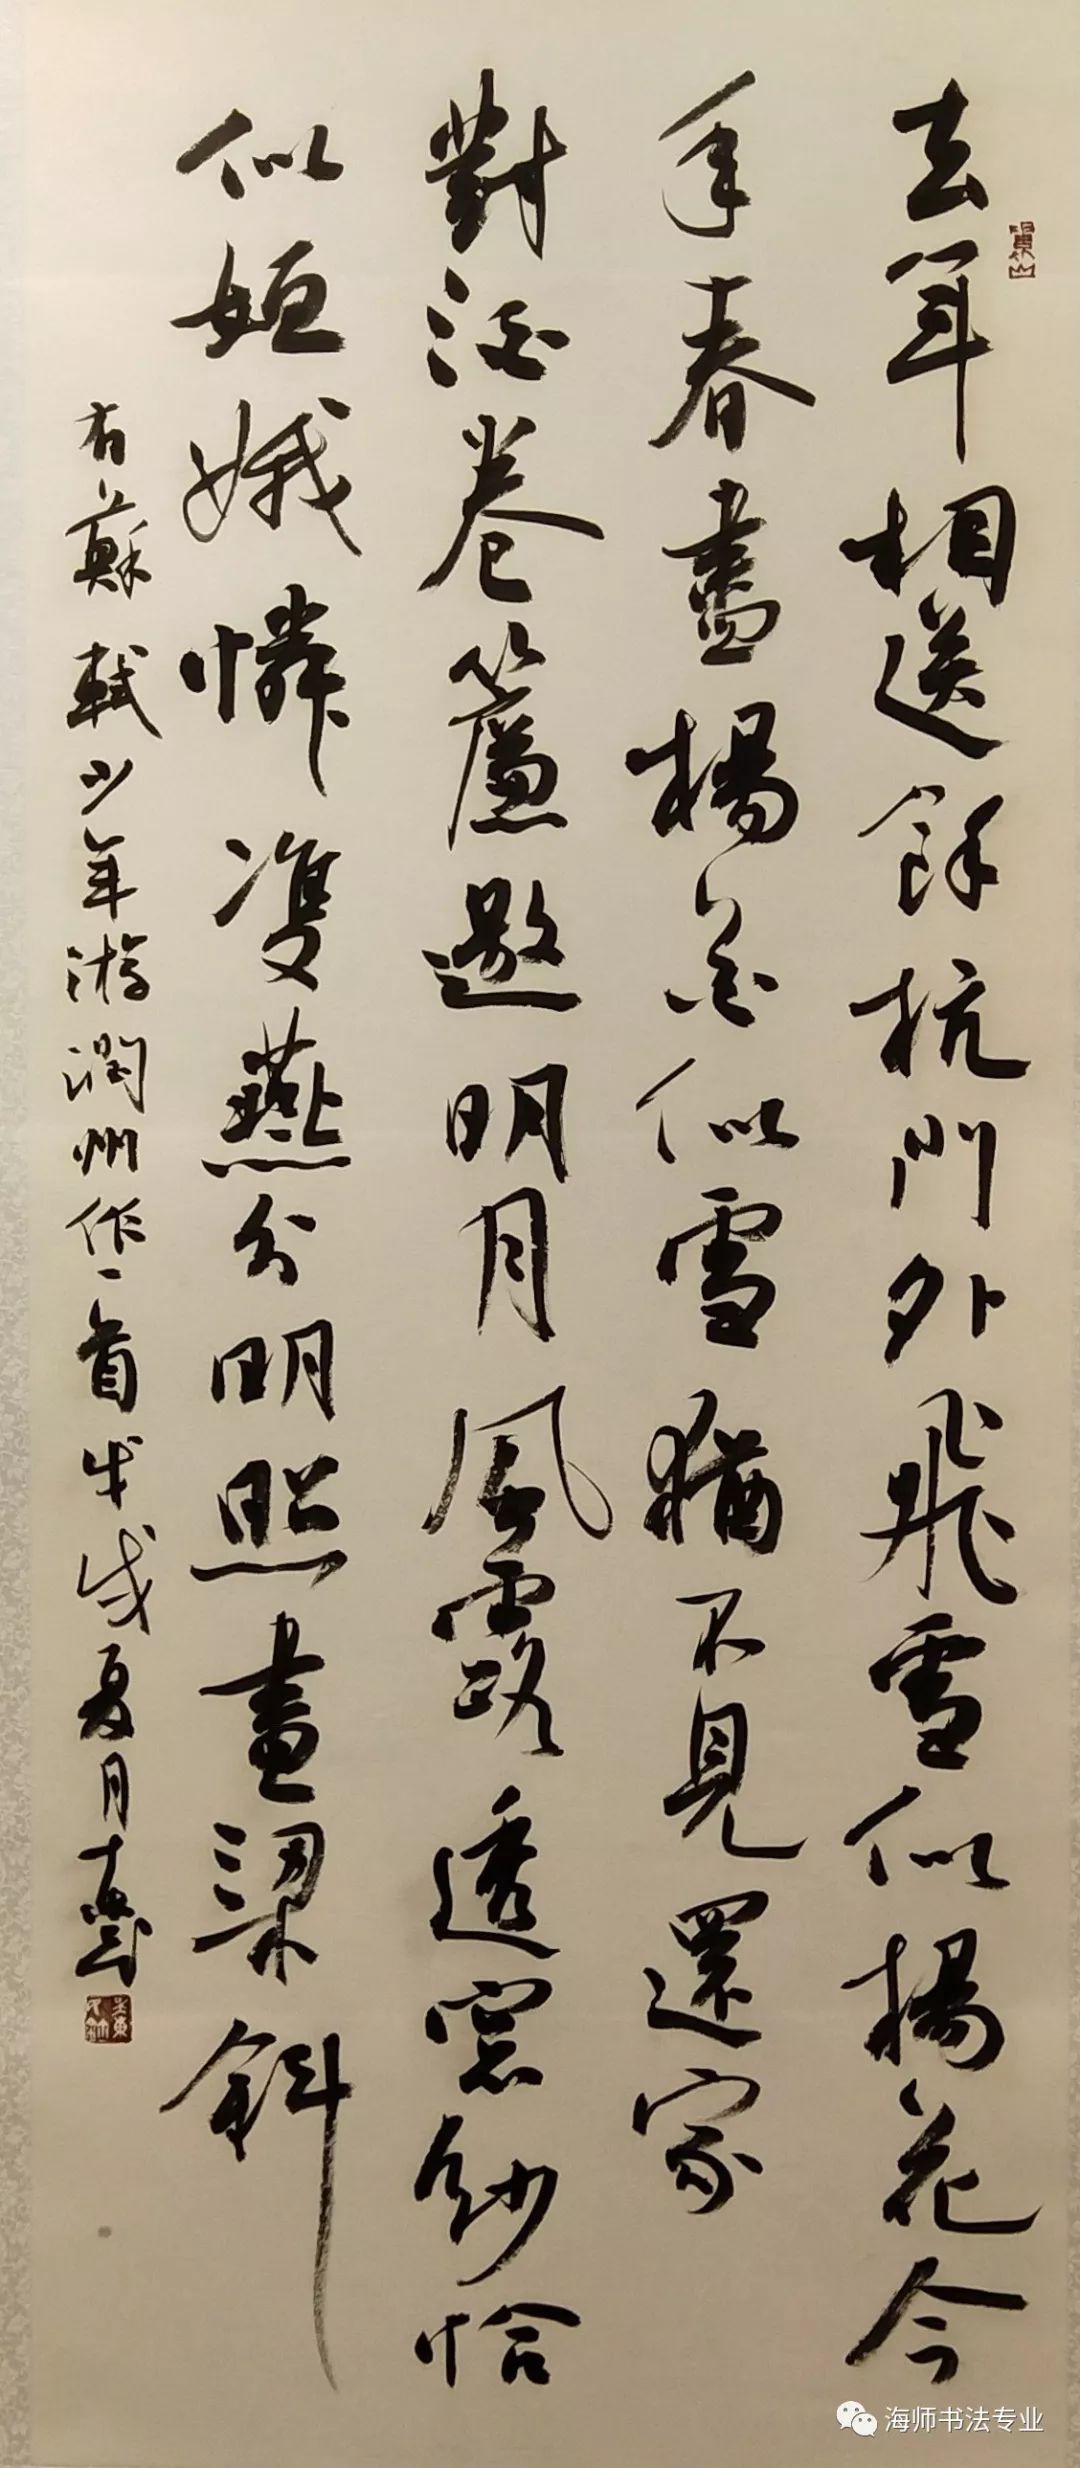 去年相送餘杭門外飛雪似楊花今
年春盡楊花似雪猶不見還家
對酒卷簾邀明月風露透窓紗恰
似姮娥憐雙燕分明照畫梁斜
右蘇軾少年游潤州作一首戊戌夏月
海师书法专业